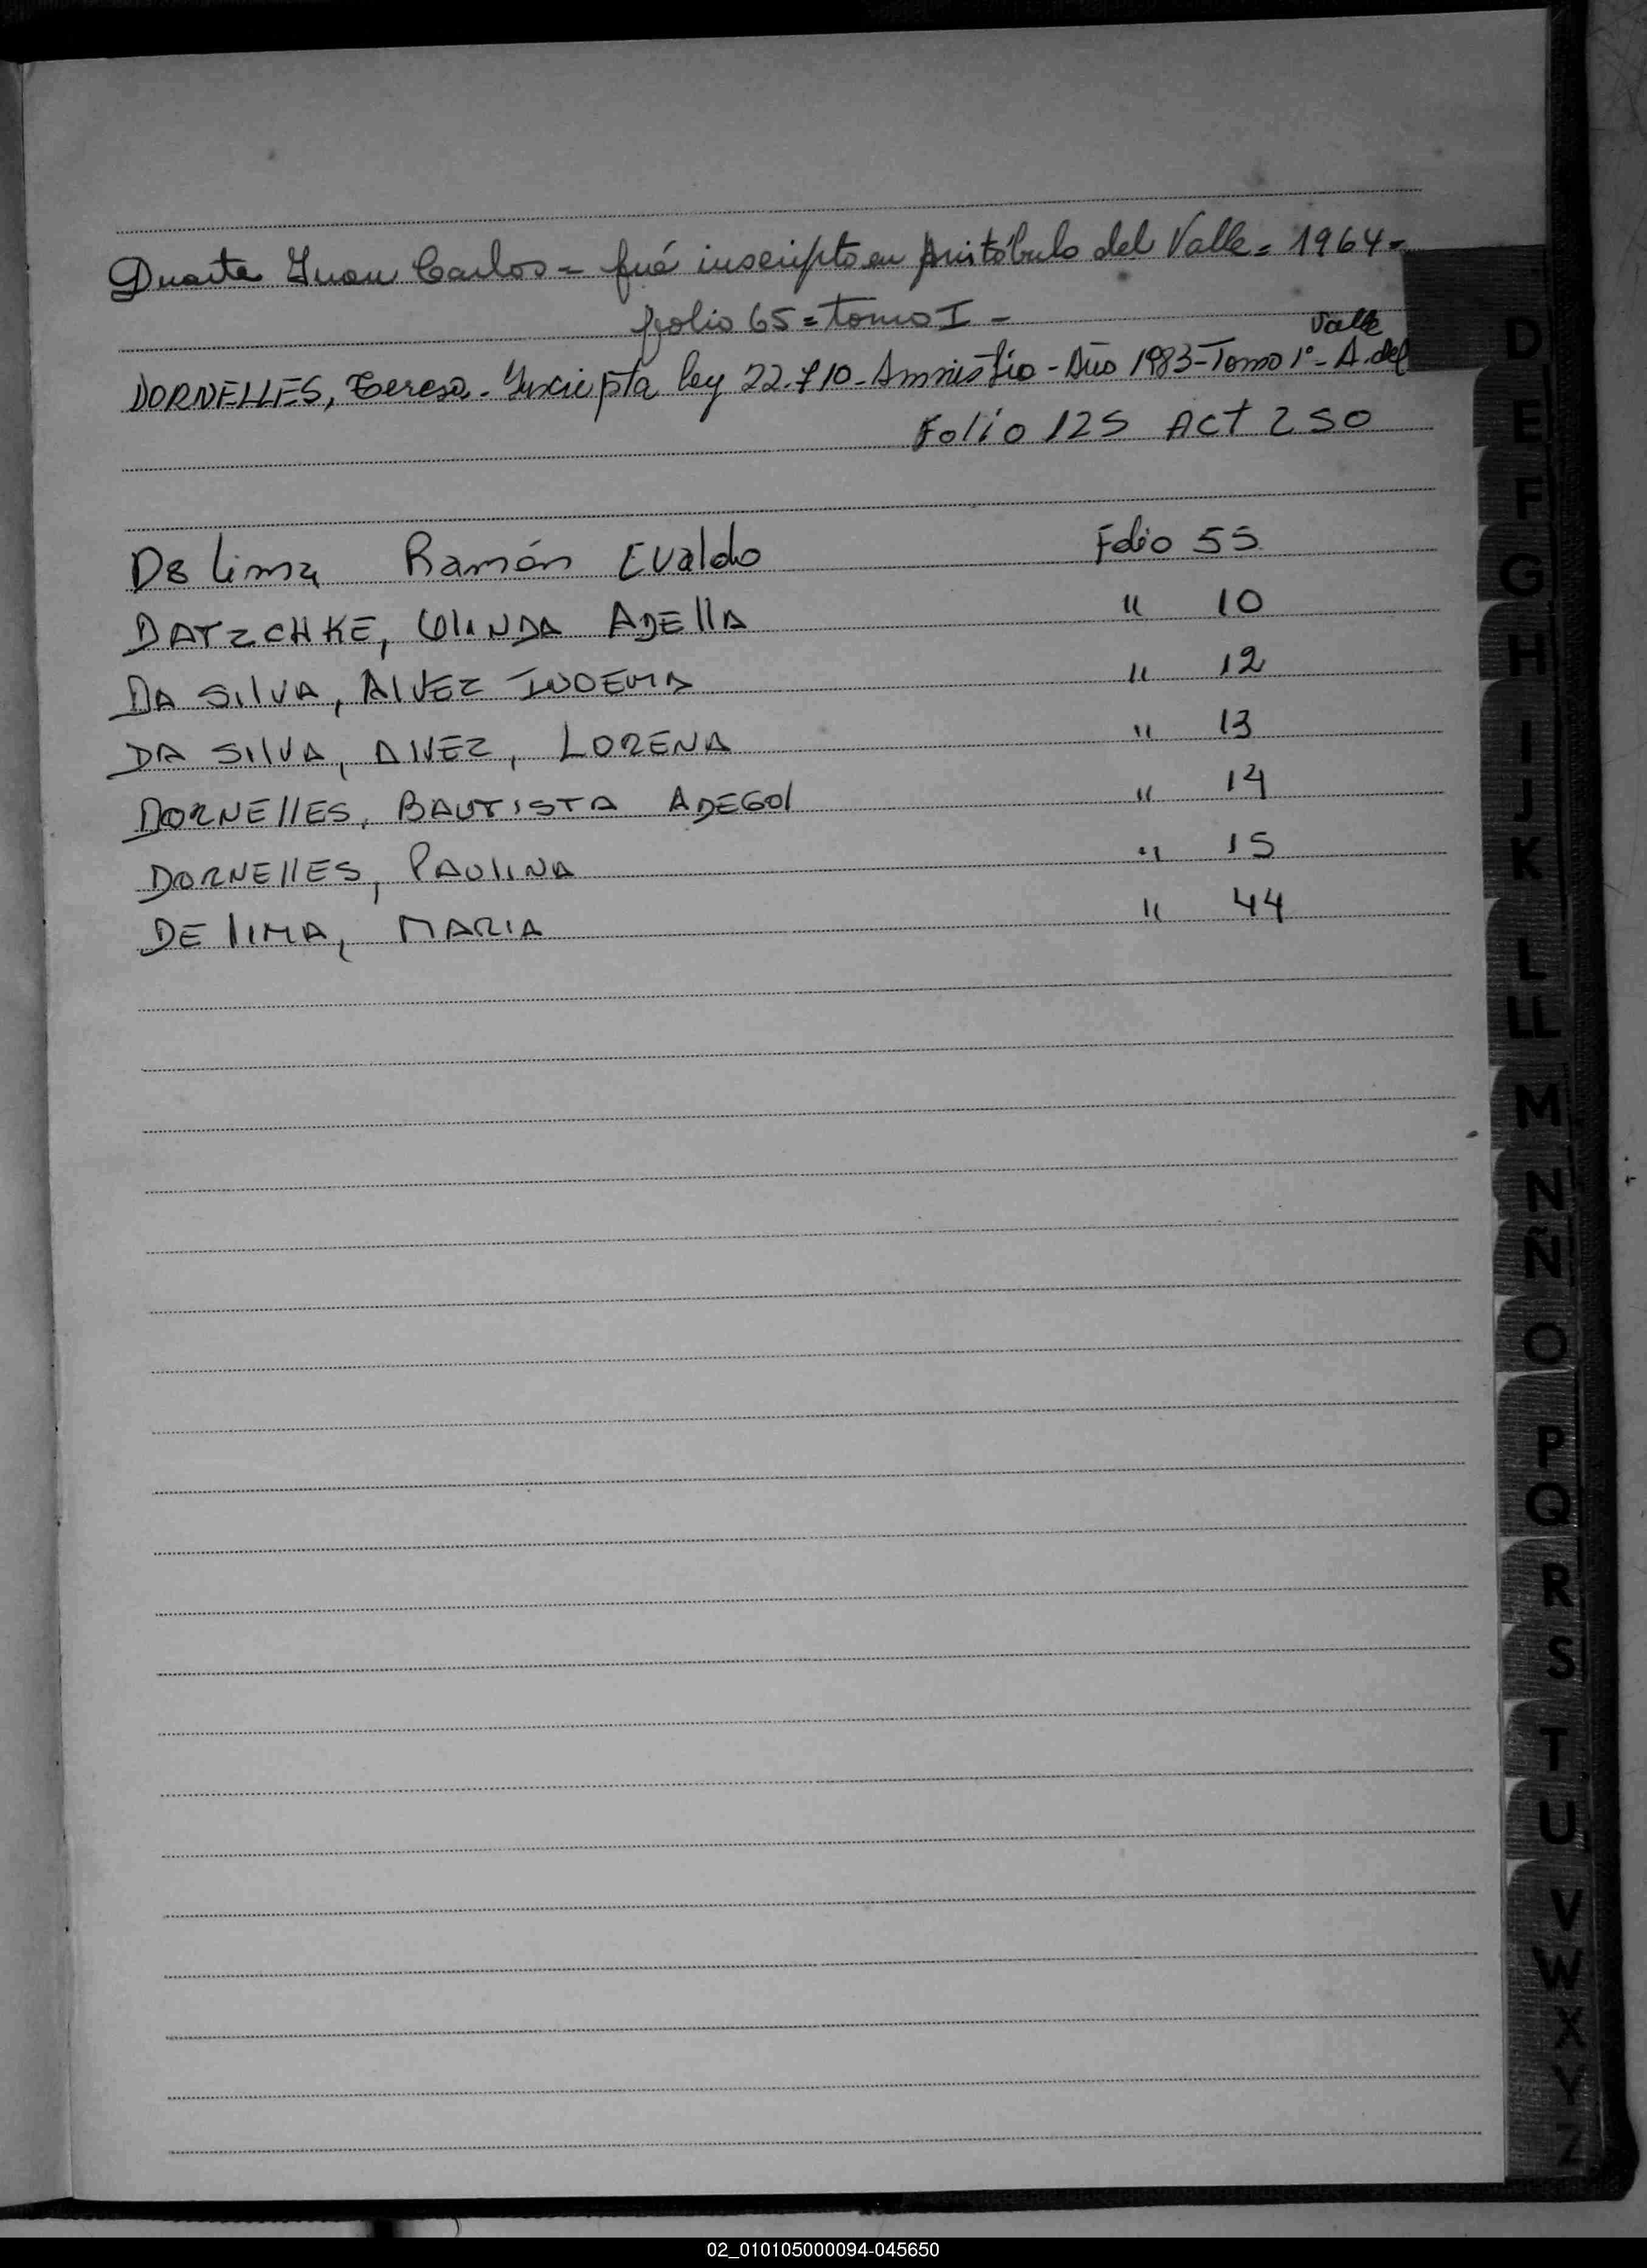 Duarte Juan Carlos = fué inscripto en Aristóbulo del Valle = 1964 =
folio 65 = tomo I -
DORNELLES, Teresa. Inscripta ley 22.710 - Amnistia - Año 1983 - Tomo 1º - A. del Valle
Folio 125 ACT 250
De lima Ramón Evaldo Folio 55
DATZCHKE, OLINDA ADELLA " 10
DA SILVA, ALVEZ " 12
DA SILVA, ALVEZ, LORENA " 13
DORNELLES, BAUTISTA ADEGOL " 14
DORNELLES, PAULINA " 15
DE LIMA, MARIA " 44
D
E
F
G
H
I
J
K
L
LL
M
N
Ñ
O
P
Q
R
S
T
U
V
W
X
Y
Z
02_010105000094-045650